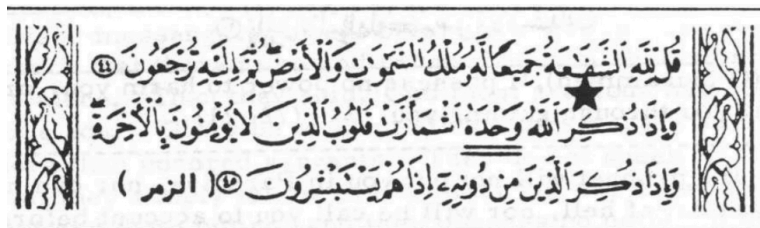 قُل لِّلَّهِ الشَّفَٰعَةُ جَمِيعًا لَّهُۥ مُلْكُ السَّمَٰوَٰتِ وَالْأَرْضِ ثُمَّ إِلَيْهِ تُرْجَعُونَ ﴿٤٤﴾
وَإِذَا ذُكِرَ اللَّهُ وَحْدَهُ اشْمَأَزَّتْ قُلُوبُ الَّذِينَ لَا يُؤْمِنُونَ بِالْآخِرَةِ
وَإِذَا ذُكِرَ الَّذِينَ مِن دُونِهِۦٓ إِذَا هُمْ يَسْتَبْشِرُونَ ﴿٤٥﴾ ( الزمر )